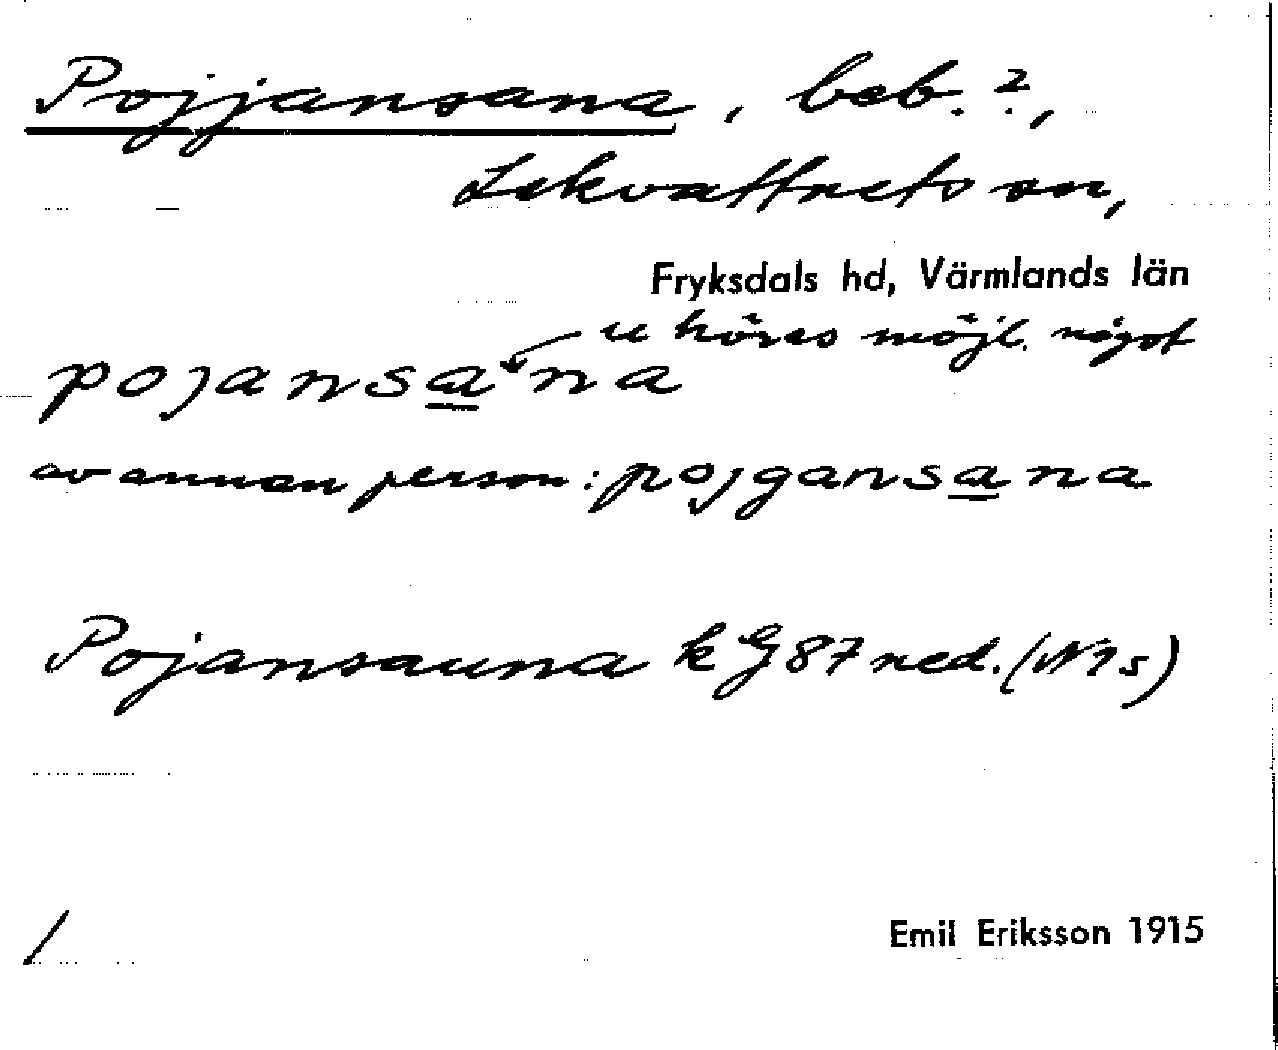 Pojjansana, beb.?,
Lekvattnets sn,
Fryksdals hd, Värmlands län
u höres möjl. något
pojansana
av annan person: pojgansana
Pojansauna k G 87 ned. (N1s)
Emil Eriksson 1915